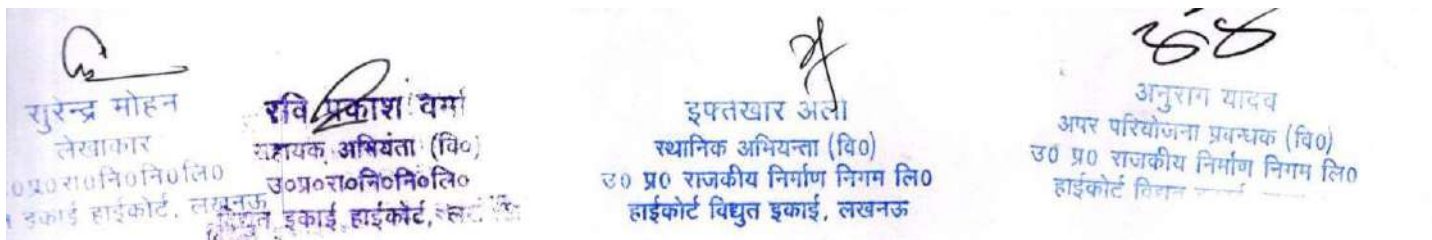 सुरेन्द्र मोहन
लेखाकार
उ०प्र०रा०नि०नि०लि०
इकाई हाईकोर्ट, लखनऊ
रवि प्रकाश वर्मा
सहायक अभियंता (वि०)
उ०प्र०रा०नि०नि०लि०
विद्युत इकाई हाईकोर्ट,
इफ्तखार अली
स्थानिक अभियन्ता (वि०)
उ० प्र० राजकीय निर्माण निगम लि०
हाईकोर्ट विद्युत इकाई, लखनऊ
अनुराग यादव
अपर परियोजना प्रबन्धक (वि०)
उ० प्र० राजकीय निर्माण निगम लि०
हाईकोर्ट विद्युत